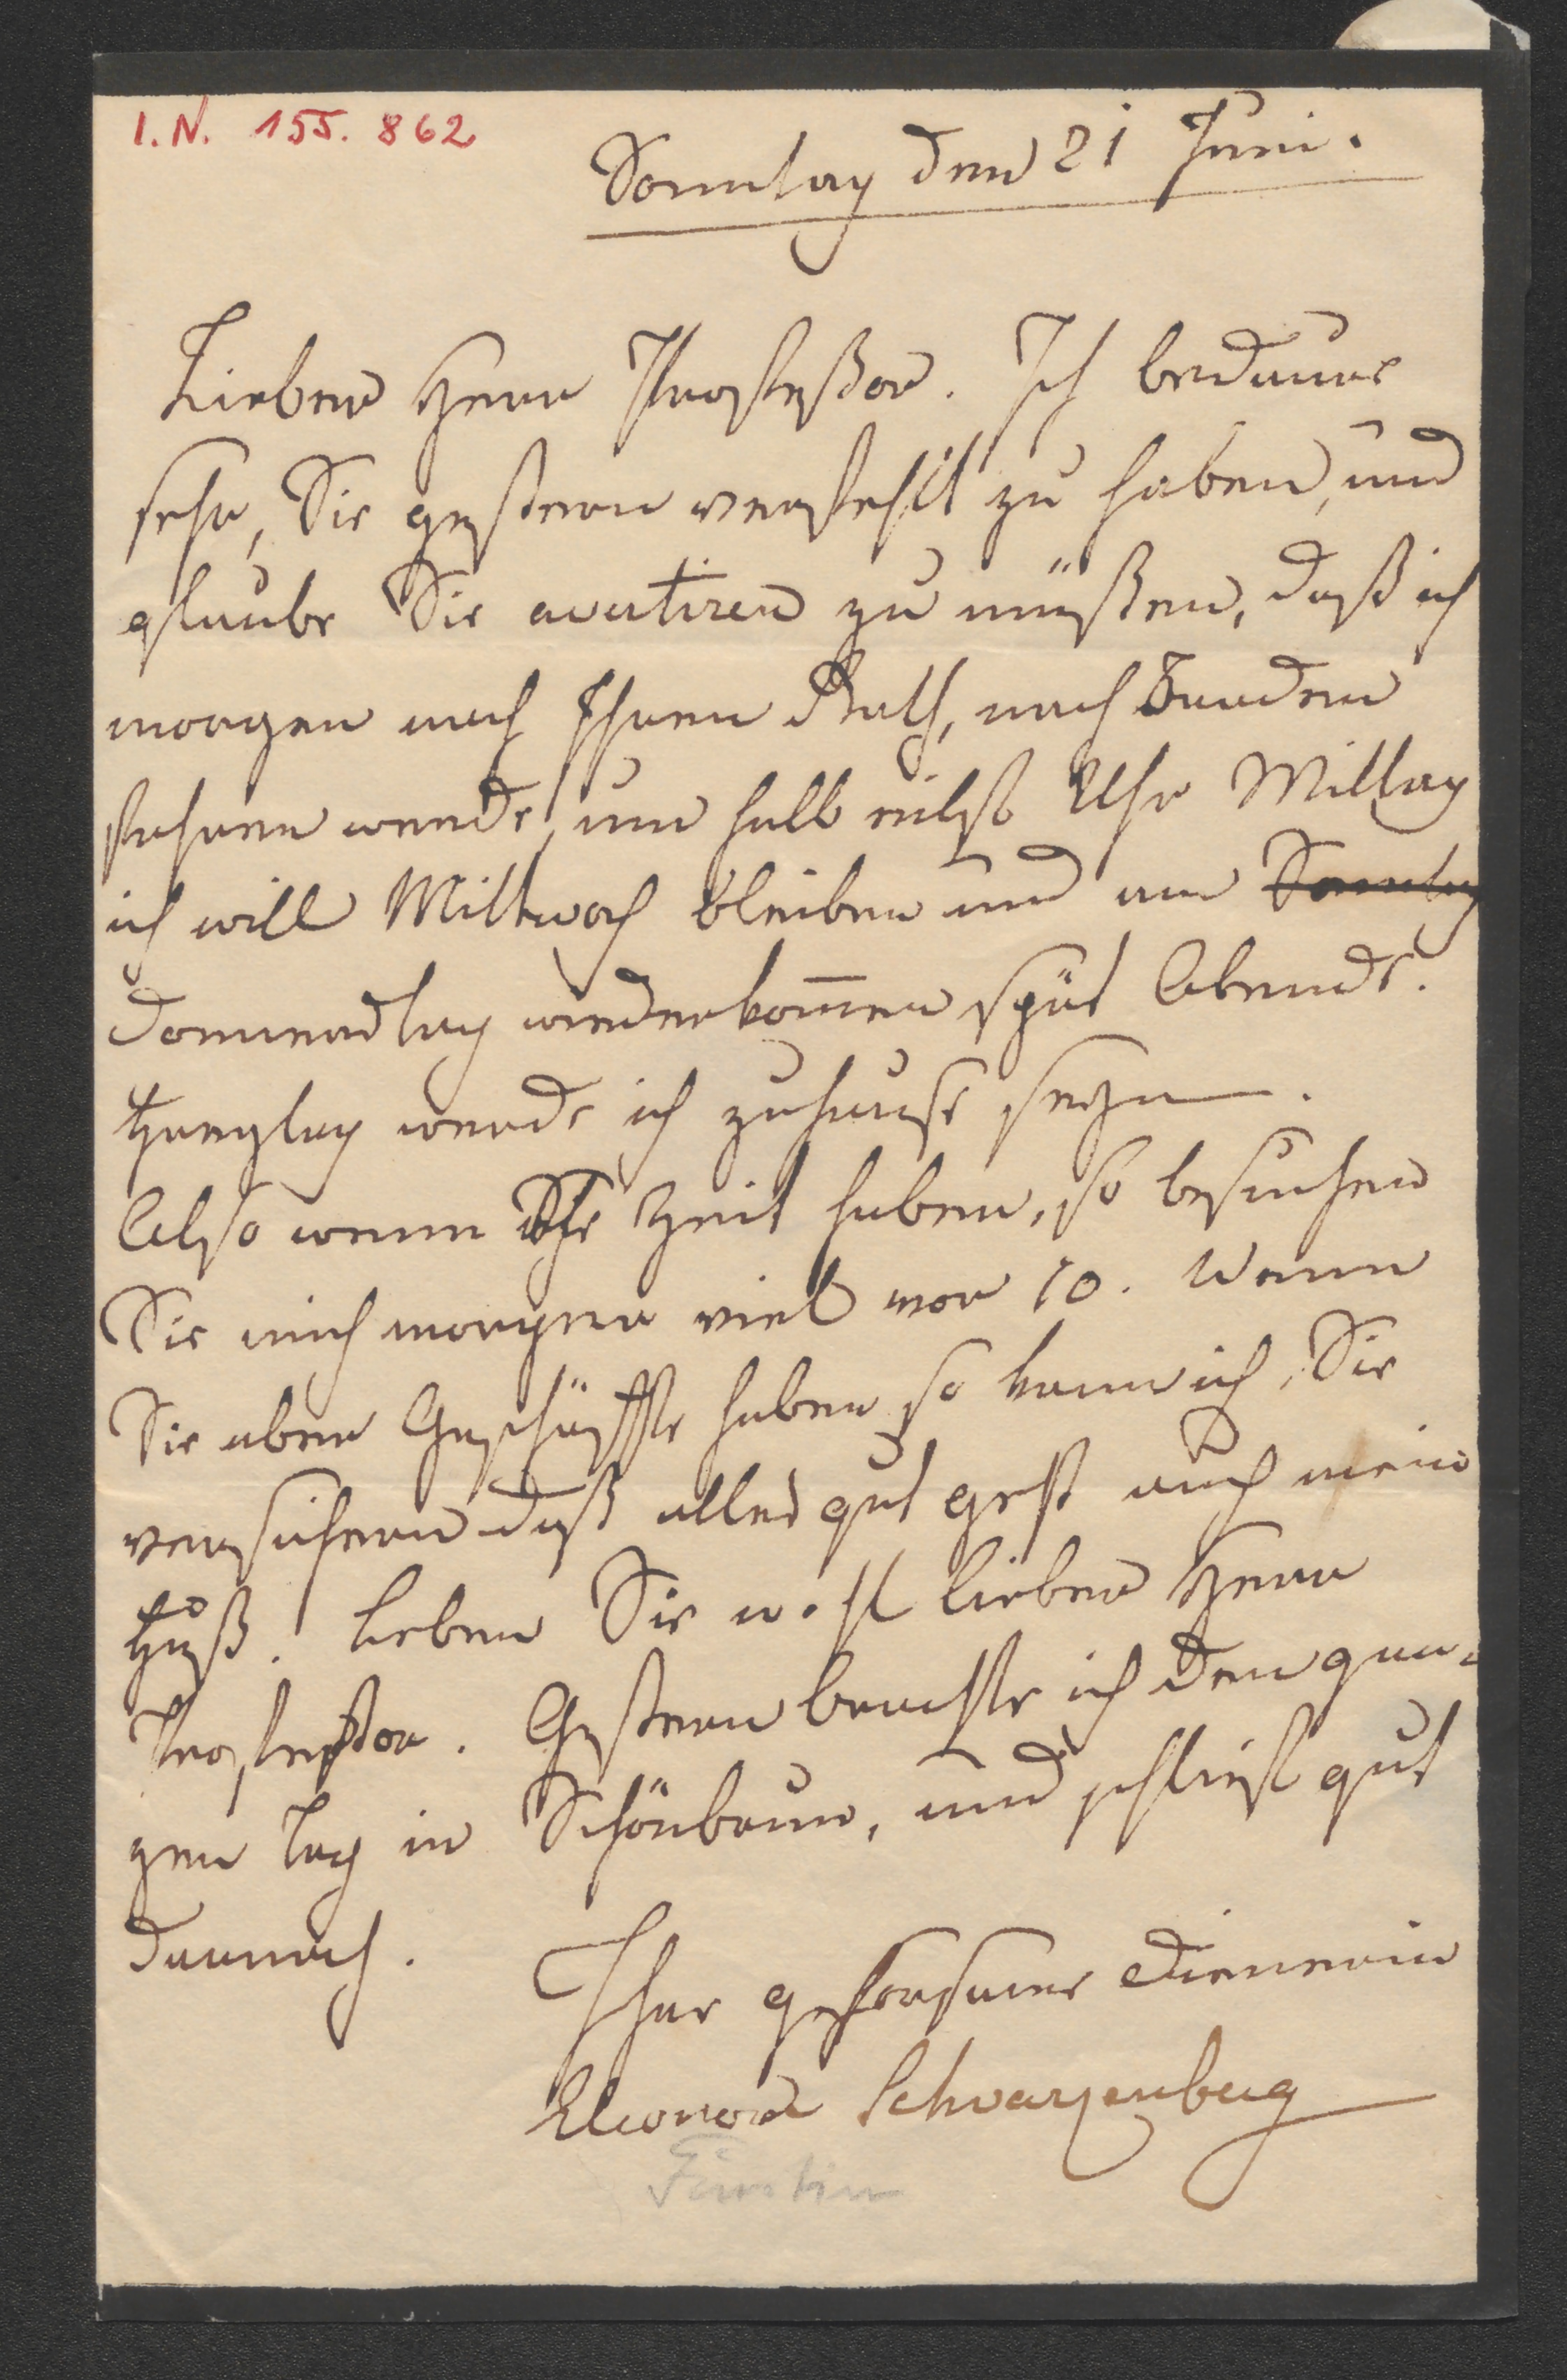 I.N. 155.862
Sonntag den 21 Juni.
Lieber Herr Professor. Ich bedaure
sehr, Sie gestern verfehlt zu haben, und
glaube Sie avertiren zu müßen, daß ich
morgen nach Ihren Rath, nach Baaden
fahren werde, um halb eilf Uhr Mittag
ich will Mittwoch bleiben und am Sonntag
Donnerstag wiederkom̅en spät Abends.
Freytag werde ich zuhause seyn.
Also wenn Sie Zeit haben, so besuchen
Sie mich morgen viel vor 10. Wenn
Sie aber Geschäffte haben so kann ich, Sie
versichern daß alles gut geht auch mein
Fuß. Leben Sie wohl lieber Herr
Professor. Gestern brachte ich den gan=
zen Tag in Schönbrun, und schlief gut
darnach.
Ihre gehorsame Dienerin
Eleonore Schwarzenberg
Fürstin